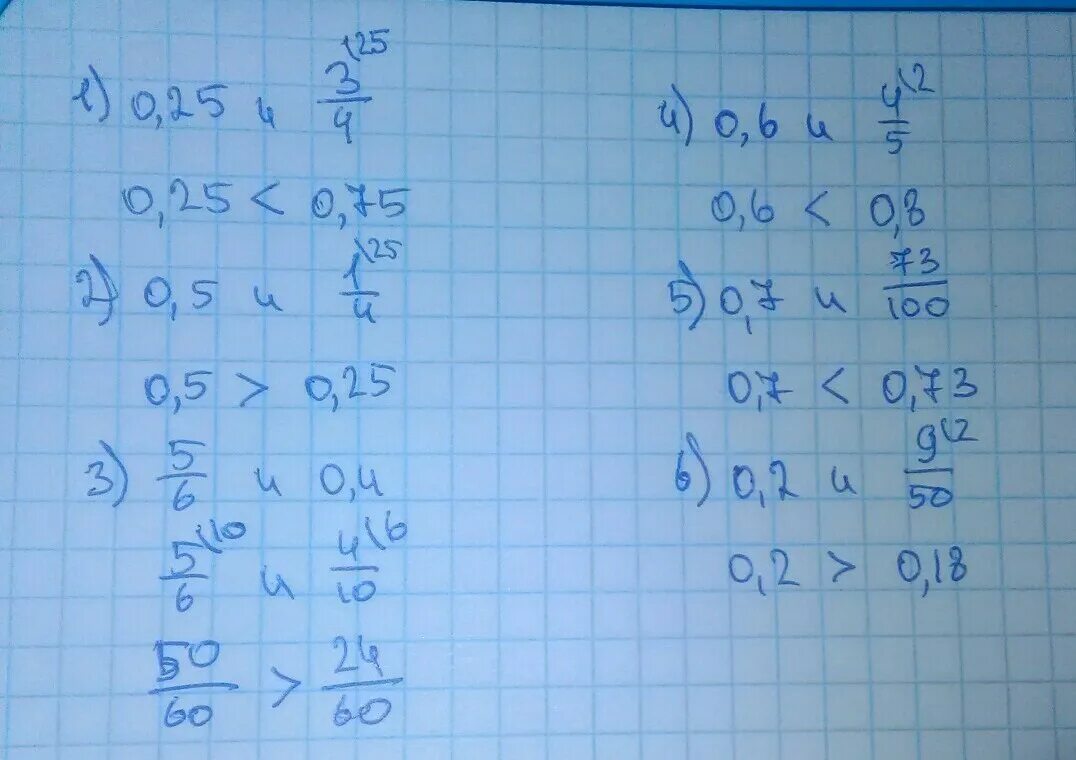 1) 0,25 и 3/4 \25
0,25 < 0,75
2) 0,5 и 1/4 \25
0,5 > 0,25
3) 5/6 и 0,4
5/6 \10 и 4/10 \6
50/60 > 24/60
4) 0,6 и 4/5 \2
0,6 < 0,8
5) 0,7 и 73/100
0,7 < 0,73
6) 0,2 и 9/50 \2
0,2 > 0,18